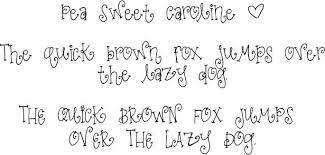 pea sweet caroline ♡
The quick brown fox jumps over
the lazy dog.
THE QUICK BROWN FOX JUMPS
OVER THE LAZY DOG.